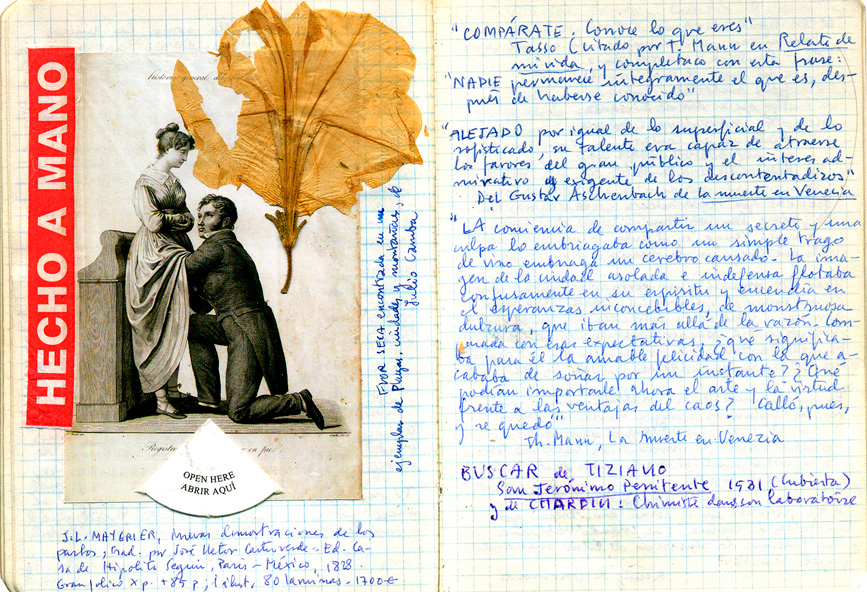 HECHO A MANO
Historia general del
Registro en pie
OPEN HERE
ABRIR AQUÍ
FLOR SECA encontrada en un
ejemplar de Playas, ciudades y montañas, de
Julio Camba
J.L. MAYGRIER, Nuevas demostraciones de los
partos, trad. por José ... - Ed. Ca-
sa de Hipólito Seguin, París - México, 1828.
Gran folio X p. + 85 p, 80 láminas. - 1700 €
"COMPÁRATE. Conoce lo que eres"
Tasso (citado por T. Mann en Relato de
mi vida, y completado con esta frase:
"NADIE permanece íntegramente el que es, des-
pués de haberse conocido"
"ALEJADO por igual de lo superficial y de lo
sofisticado, su talento era capaz de atraerse
los favores del gran público y el interés ad-
mirativo y exigente de los descontentadizos"
Del Gustav Aschenbach de La muerte en Venecia
"LA conciencia de compartir un secreto y una
culpa lo embriagaba como un simple trago
de vino embriaga un cerebro cansado. La ima-
gen de la ciudad asolada e indefensa flotaba
confusamente en su espíritu y encendía en
él esperanzas inconcebibles, de monstruosa
dulzura, que iban más allá de la razón. Com-
parada con esas expectativas, ¿qué significa-
ba para él la amable felicidad con la que a-
cababa de soñar por un instante? ¿Qué
podían importarle ahora el arte y la virtud
frente a las ventajas del caos? Calló, pues,
y se quedó"
Th. Mann, La muerte en Venezia
BUSCAR de TIZIANO
San Jerónimo Penitente 1931 (Cubierta)
y de CHARDIN: Chimiste dans son laboratoire